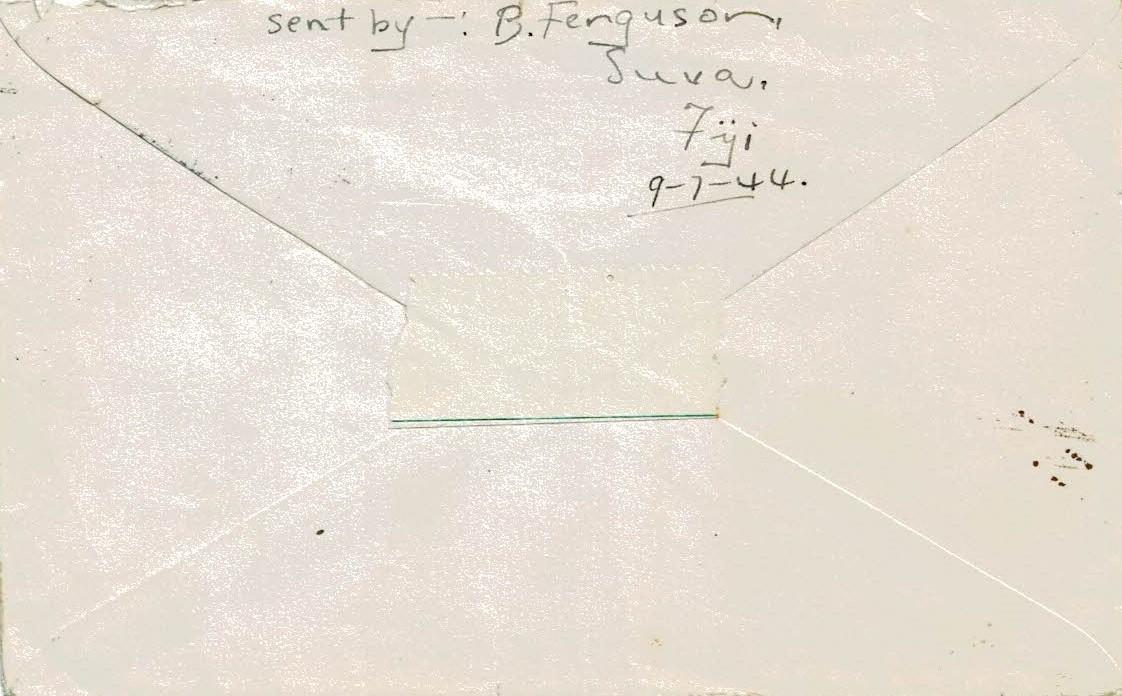 sent by -: B. Ferguson,
Suva.
Fiji
9-7-44.